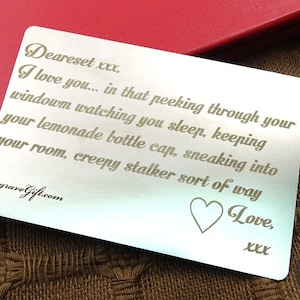 Deareset xxx,
I love you... in that peeking through your
windowm watching you sleep, keeping
your lemonade bottle cap, sneaking into
your room, creepy stalker sort of way
Love,
xxx
graveGift.com